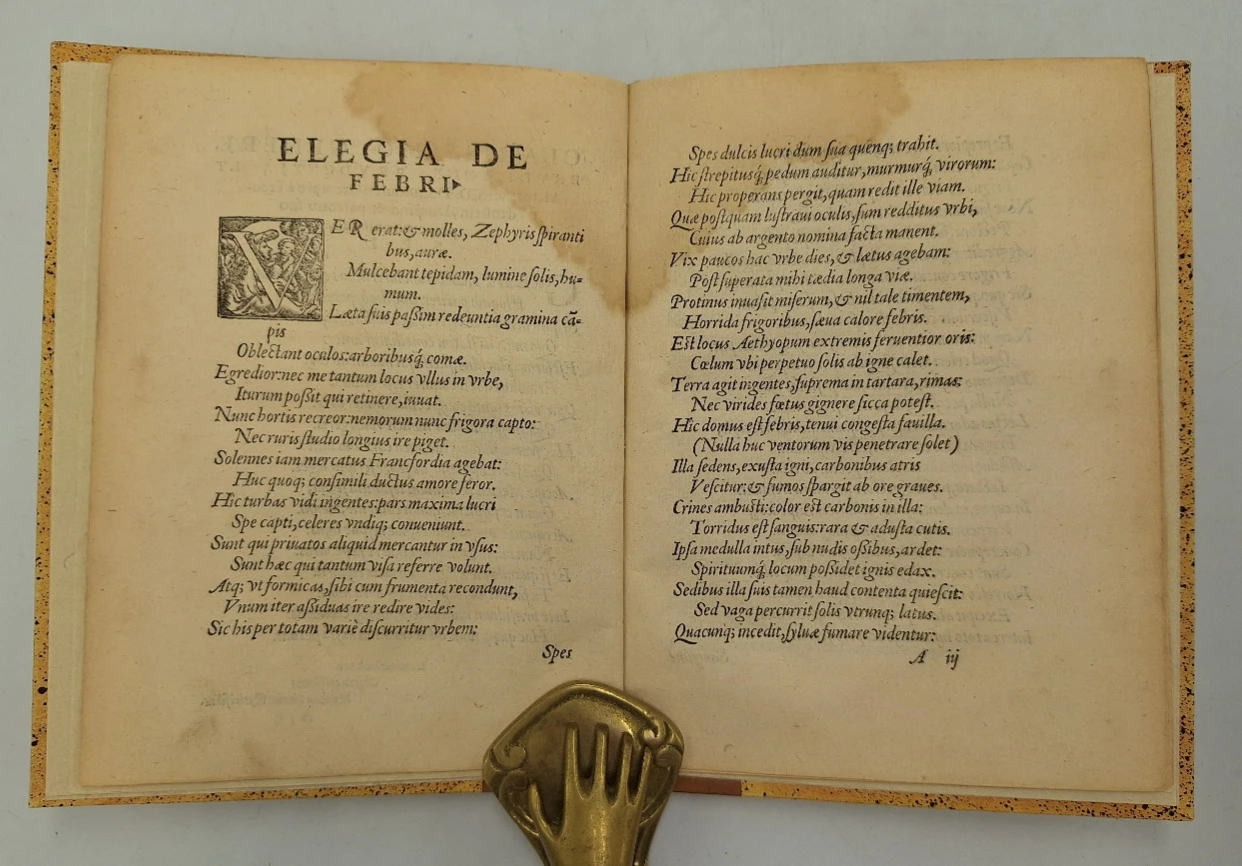 ELEGIA DE
FEBRI
VER erat: & molles, Zephyris spiranti
bus, auræ.
Mulcebant tepidam, lumine solis, hu-
mum.
Læta suis paßim redeuntia gramina cā-
pis
Oblectant oculos: arboribusq́; comæ.
Egredior: nec me tantum locus vllus in vrbe,
Iturum poßit qui retinere, iuuat.
Nunc hortis recreor: nemorum nunc frigora capto:
Nec ruris studio longius ire piget.
Solennes iam mercatus Francfordia agebat:
Huc quoq; consimili ductus amore feror.
Hic turbas vidi ingentes: pars maxima lucri
Spe capti, celeres vndiq; conueniunt.
Sunt qui priuatos aliquid mercantur in vsus:
Sunt hæc qui tantum visa referre volunt.
Atq; vt formicas, sibi cum frumenta recondunt,
Vnum iter aßiduas ire redire vides:
Sic his per totam variè discurritur vrbem:
Spes
Spes dulcis lucri dum sua quenq; trahit.
Hic strepitusq́; pedum auditur, murmurq́; virorum:
Hic properans pergit, quam redit ille viam.
Quæ postquam lustraui oculis, sum redditus vrbi,
Cuius ab argento nomina facta manent.
Vix paucos hac vrbe dies, & lætus agebam:
Post superata mihi tædia longa viæ.
Protinus inuasit miserum, & nil tale timentem,
Horrida frigoribus, sæua calore febris.
Est locus Aethyopum extremis feruentior oris:
Cœlum vbi perpetuo solis ab igne calet.
Terra agit ingentes, suprema in tartara, rimas:
Nec virides fœtus gignere sicca potest.
Hic domus est febris, tenui congesta fauilla.
(Nulla huc ventorum vis penetrare solet)
Illa sedens, exusta igni, carbonibus atris
Vescitur: & fumos spargit ab ore graues.
Crines ambusti: color est carbonis in illa:
Torridus est sanguis: rara & adusta cutis.
Ipsa medulla intus, sub nudis oßibus, ardet:
Spirituumq́; locum poßidet ignis edax.
Sedibus illa suis tamen haud contenta quiescit:
Sed vaga percurrit solis vtrunq; latus.
Quacunq; incedit, syluæ fumare videntur:
A iij